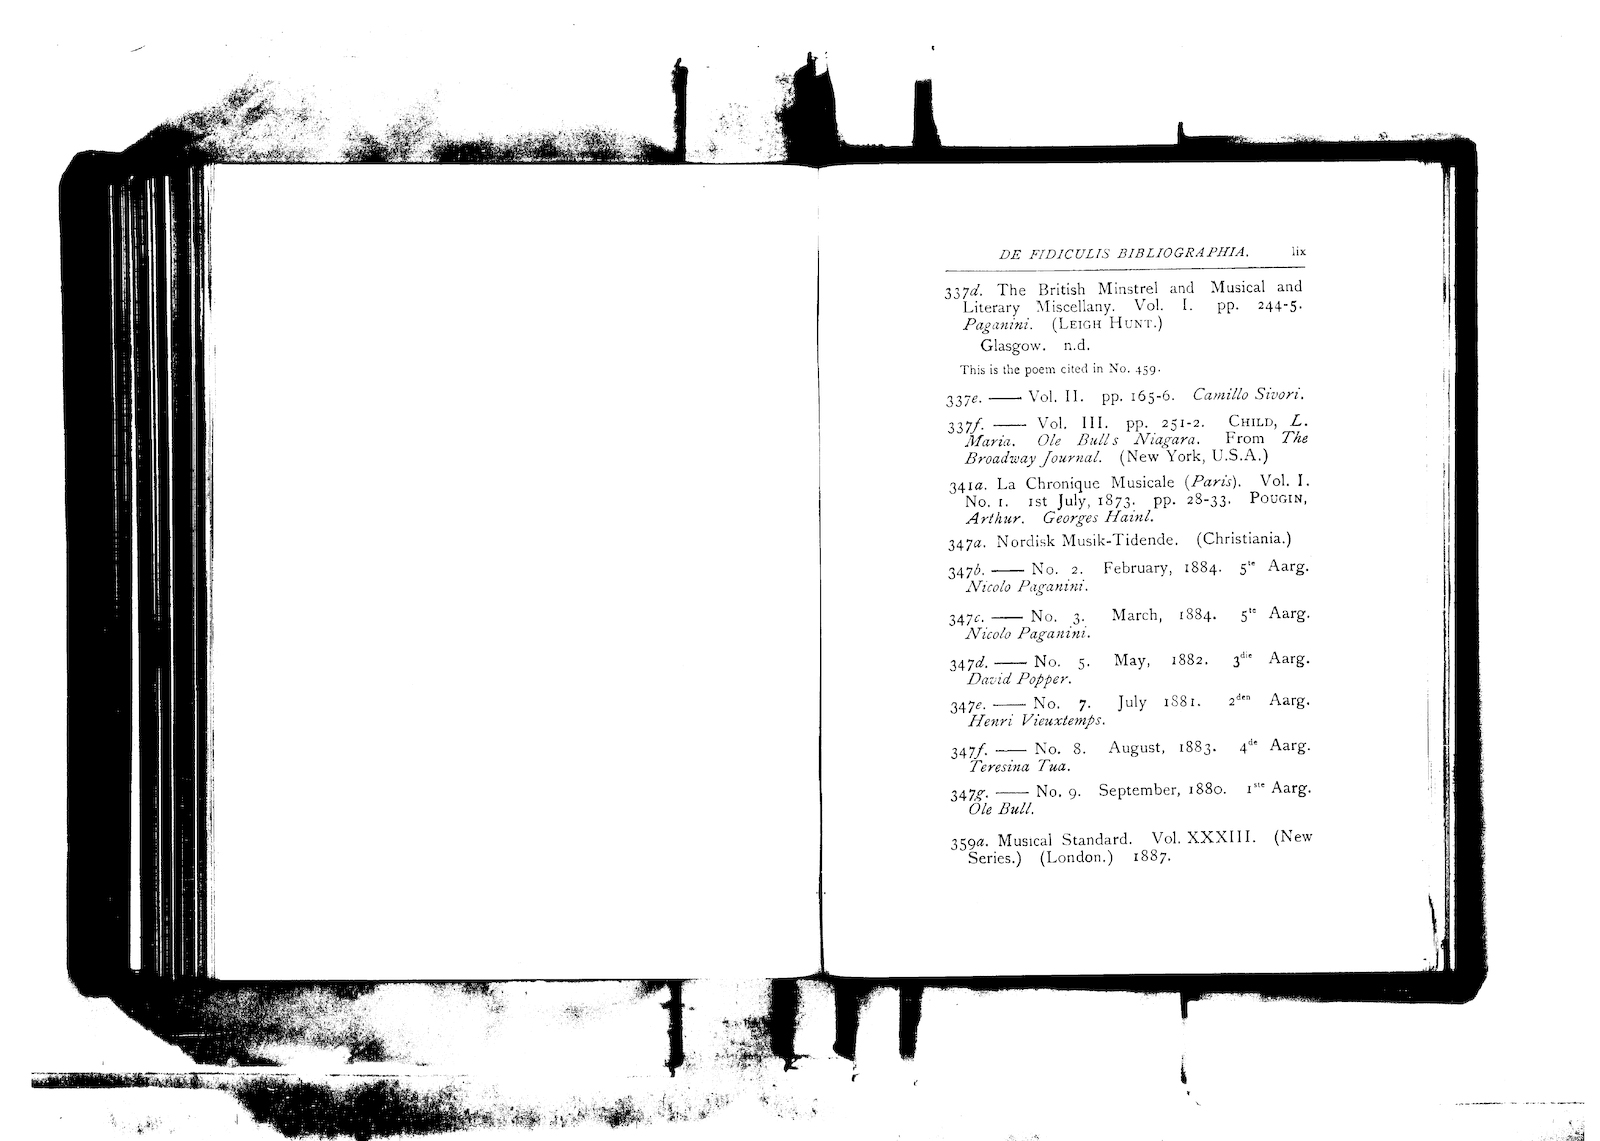 DE FIDICULIS BIBLIOGRAPHIA. lix
337d. The British Minstrel and Musical and
Literary Miscellany. Vol. I. pp. 244-5.
Paganini. (LEIGH HUNT.)
Glasgow. n.d.
This is the poem cited in No. 459.
337e. —— Vol. II. pp. 165-6. Camillo Sivori.
337f. —— Vol. III. pp. 251-2. CHILD, L.
Maria. Ole Bull's Niagara. From The
Broadway Journal. (New York, U.S.A.)
341a. La Chronique Musicale (Paris). Vol. I.
No. 1. 1st July, 1873. pp. 28-33. POUGIN,
Arthur. Georges Hainl.
347a. Nordisk Musik-Tidende. (Christiania.)
347b. —— No. 2. February, 1884. 5te Aarg.
Nicolo Paganini.
347c. —— No. 3. March, 1884. 5te Aarg.
Nicolo Paganini.
347d. —— No. 5. May, 1882. 3die Aarg.
David Popper.
347e. —— No. 7. July 1881. 2den Aarg.
Henri Vieuxtemps.
347f. —— No. 8. August, 1883. 4de Aarg.
Teresina Tua.
347g. —— No. 9. September, 1880. 1ste Aarg.
Ole Bull.
359a. Musical Standard. Vol. XXXIII. (New
Series.) (London.) 1887.